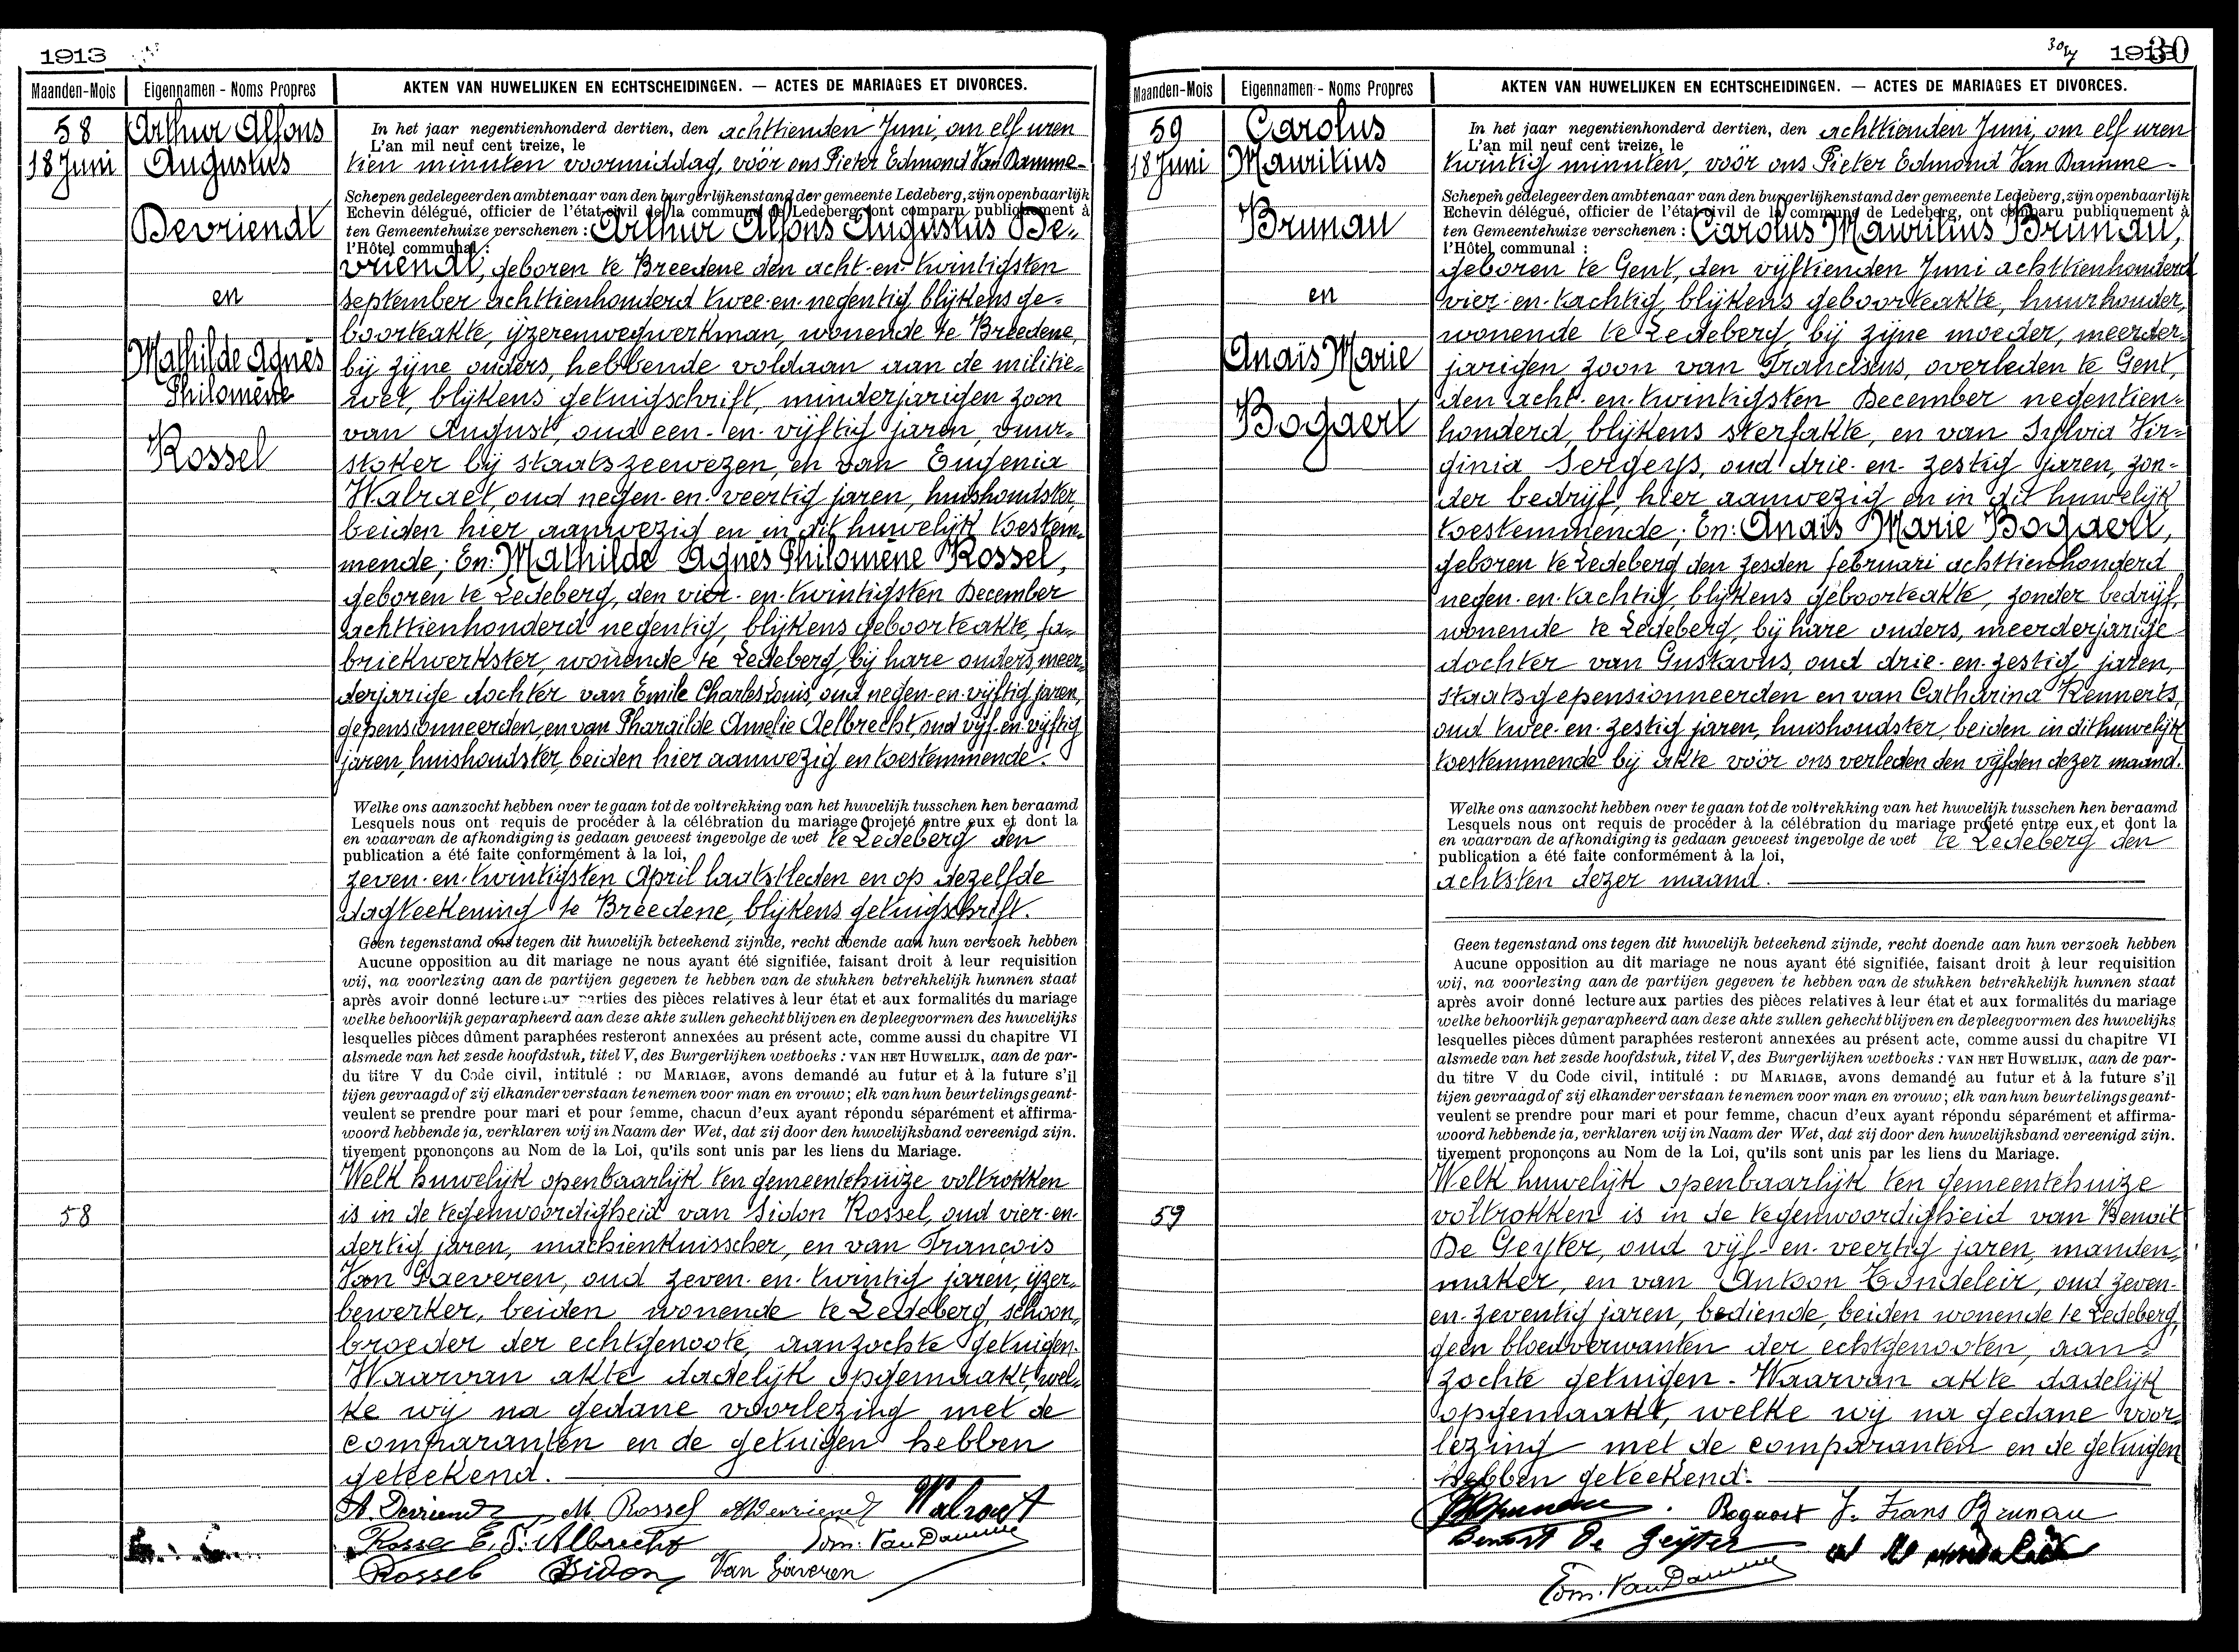 1913
Maanden-Mois
Eigennamen - Noms Propres
AKTEN VAN HUWELIJKEN EN ECHTSCHEIDINGEN. — ACTES DE MARIAGES ET DIVORCES.
58
18 Juni
Arthur Alfons
Augustus
Devriendt
en
Mathilde Agnès
Philomène
Rossel
In het jaar negentienhonderd dertien, den achttienden Juni, om elf uren
L'an mil neuf cent treize, le
tien minuten voormiddag, vóór ons Pieter Edmond Van Damme-
Schepen gedelegeerden ambtenaar van den burgerlijkenstand der gemeente Ledeberg, zijn openbaarlijk
Echevin délégué, officier de l'état-civil de la commune de Ledeberg, ont comparu publiquement à
ten Gemeentehuize verschenen : Arthur Alfons Augustus De-
l'Hôtel communal :
vriendt, geboren te Breedene den acht-en-twintigsten
september achttienhonderd twee-en-negentig blijkens ge-
boorteakte, ijzerenwegwerkman, wonende te Breedene,
bij zijne ouders, hebbende voldaan aan de militie-
wet, blijkens getuigschrift, minderjarigen zoon
van August, oud een-en-vijftig jaren, vuur-
stoker bij staatszeewezen, en van Eugenia
Walraet, oud negen-en-veertig jaren, huishoudster,
beiden hier aanwezig en in dit huwelijk toestem-
mende; En: Mathilde Agnès Philomène Rossel,
geboren te Ledeberg, den vier-en-twintigsten December
achttienhonderd negentig, blijkens geboorteakte, fa-
briekwerkster, wonende te Ledeberg, bij hare ouders, meer-
derjarige dochter van Emile Charles Louis, oud negen-en-vijftig jaren,
gepensionneerden, en van Pharaïlde Amelie Aelbrecht, oud vijf-en-vijftig
jaren, huishoudster, beiden hier aanwezig en toestemmende.
Welke ons aanzocht hebben over te gaan tot de voltrekking van het huwelijk tusschen hen beraamd
Lesquels nous ont requis de procéder à la célébration du mariage projeté entre eux et dont la
en waarvan de afkondiging is gedaan geweest ingevolge de wet te Ledeberg den
publication a été faite conformément à la loi,
zeven-en-twintigsten April laatstleden en op dezelfde
dagteekening te Breedene, blijkens getuigschrift.
Geen tegenstand ons tegen dit huwelijk beteekend zijnde, recht doende aan hun verzoek hebben
Aucune opposition au dit mariage ne nous ayant été signifiée, faisant droit à leur requisition
wij, na voorlezing aan de partijen gegeven te hebben van de stukken betrekkelijk hunnen staat
après avoir donné lecture aux parties des pièces relatives à leur état et aux formalités du mariage
welke behoorlijk geparapheerd aan deze akte zullen gehecht blijven en de pleegvormen des huwelijks
lesquelles pièces dûment paraphées resteront annexées au présent acte, comme aussi du chapitre VI
alsmede van het zesde hoofdstuk, titel V, des Burgerlijken wetboeks : VAN HET HUWELIJK, aan de par-
du titre V du Code civil, intitulé : DU MARIAGE, avons demandé au futur et à la future s'il
tijen gevraagd of zij elkander verstaan te nemen voor man en vrouw; elk van hun beurtelings geant-
veulent se prendre pour mari et pour femme, chacun d'eux ayant répondu séparément et affirma-
woord hebbende ja, verklaren wij in Naam der Wet, dat zij door den huwelijksband vereenigd zijn.
tivement prononçons au Nom de la Loi, qu'ils sont unis par les liens du Mariage.
58
Welk huwelijk openbaarlijk ten gemeentehuize voltrokken
is in de tegenwoordigheid van Sidon Rossel, oud vier-en-
dertig jaren, machienkuisscher, en van François
Van Gaeveren, oud zeven-en-twintig jaren, ijzer-
bewerker, beiden wonende te Ledeberg, schoon-
broeder der echtgenoote, aanzochte getuigen.
Waarvan akte dadelijk opgemaakt, wel-
ke wij na gedane voorlezing met de
comparanten en de getuigen hebben
geteekend.
A. Devriendt M. Rossel ADevriendt Walraet
Rossel E. P. Albrecht Edm. Van Damme
Rossel Sidon Van Gaveren
30
Maanden-Mois
Eigennamen - Noms Propres
AKTEN VAN HUWELIJKEN EN ECHTSCHEIDINGEN. — ACTES DE MARIAGES ET DIVORCES.
59
18 Juni
Carolus
Mauritius
Brunau
en
Anaïs Marie
Bogaert
In het jaar negentienhonderd dertien, den achttienden Juni, om elf uren
L'an mil neuf cent treize, le
twintig minuten, vóór ons Pieter Edmond Van Damme-
Schepen gedelegeerden ambtenaar van den burgerlijkenstand der gemeente Ledeberg, zijn openbaarlijk
Echevin délégué, officier de l'état-civil de la commune de Ledeberg, ont comparu publiquement à
ten Gemeentehuize verschenen : Carolus Mauritius Brunau,
l'Hôtel communal :
geboren te Gent, den vijftienden Juni achttienhonderd
vier-en-tachtig, blijkens geboorteakte, huurhouder,
wonende te Ledeberg, bij zijne moeder, meerder-
jarigen zoon van Franciscus, overleden te Gent,
den acht-en-twintigsten December negentien-
honderd, blijkens sterfakte, en van Sylvia Vir-
ginia Sergeys, oud drie-en-zestig jaren, zon-
der bedrijf, hier aanwezig en in dit huwelijk
toestemmende; En: Anaïs Marie Bogaert,
geboren te Ledeberg den zesden februari achttienhonderd
negen-en-tachtig, blijkens geboorteakte, zonder bedrijf,
wonende te Ledeberg, bij hare ouders, meerderjarige
dochter van Gustavus, oud drie-en-zestig jaren,
staatsgepensionneerden en van Catharina Rennerts,
oud twee-en-zestig jaren, huishoudster, beiden in dit huwelijk
toestemmende bij akte vóór ons verleden den vijfden dezer maand.
Welke ons aanzocht hebben over te gaan tot de voltrekking van het huwelijk tusschen hen beraamd
Lesquels nous ont requis de procéder à la célébration du mariage projeté entre eux et dont la
en waarvan de afkondiging is gedaan geweest ingevolge de wet te Ledeberg den
publication a été faite conformément à la loi,
achtsten dezer maand.
Geen tegenstand ons tegen dit huwelijk beteekend zijnde, recht doende aan hun verzoek hebben
Aucune opposition au dit mariage ne nous ayant été signifiée, faisant droit à leur requisition
wij, na voorlezing aan de partijen gegeven te hebben van de stukken betrekkelijk hunnen staat
après avoir donné lecture aux parties des pièces relatives à leur état et aux formalités du mariage
welke behoorlijk geparapheerd aan deze akte zullen gehecht blijven en de pleegvormen des huwelijks
lesquelles pièces dûment paraphées resteront annexées au présent acte, comme aussi du chapitre VI
alsmede van het zesde hoofdstuk, titel V, des Burgerlijken wetboeks : VAN HET HUWELIJK, aan de par-
du titre V du Code civil, intitulé : DU MARIAGE, avons demandé au futur et à la future s'il
tijen gevraagd of zij elkander verstaan te nemen voor man en vrouw; elk van hun beurtelings geant-
veulent se prendre pour mari et pour femme, chacun d'eux ayant répondu séparément et affirma-
woord hebbende ja, verklaren wij in Naam der Wet, dat zij door den huwelijksband vereenigd zijn.
tivement prononçons au Nom de la Loi, qu'ils sont unis par les liens du Mariage.
59
Welk huwelijk openbaarlijk ten gemeentehuize
voltrokken is in de tegenwoordigheid van Benoit
De Geyter, oud vijf-en-veertig jaren, manden-
maker, en van Antoon Tondeleir, oud zeven-
en-zeventig jaren, bediende, beiden wonende te Ledeberg,
geen bloedverwanten der echtgenooten, aan-
zochte getuigen. Waarvan akte dadelijk
opgemaakt, welke wij na gedane voor-
lezing met de comparanten en de getuigen
hebben geteekend.
Brunau Bogaert J. Frans Brunau
Benoit De Geyter
Edm. Van Damme